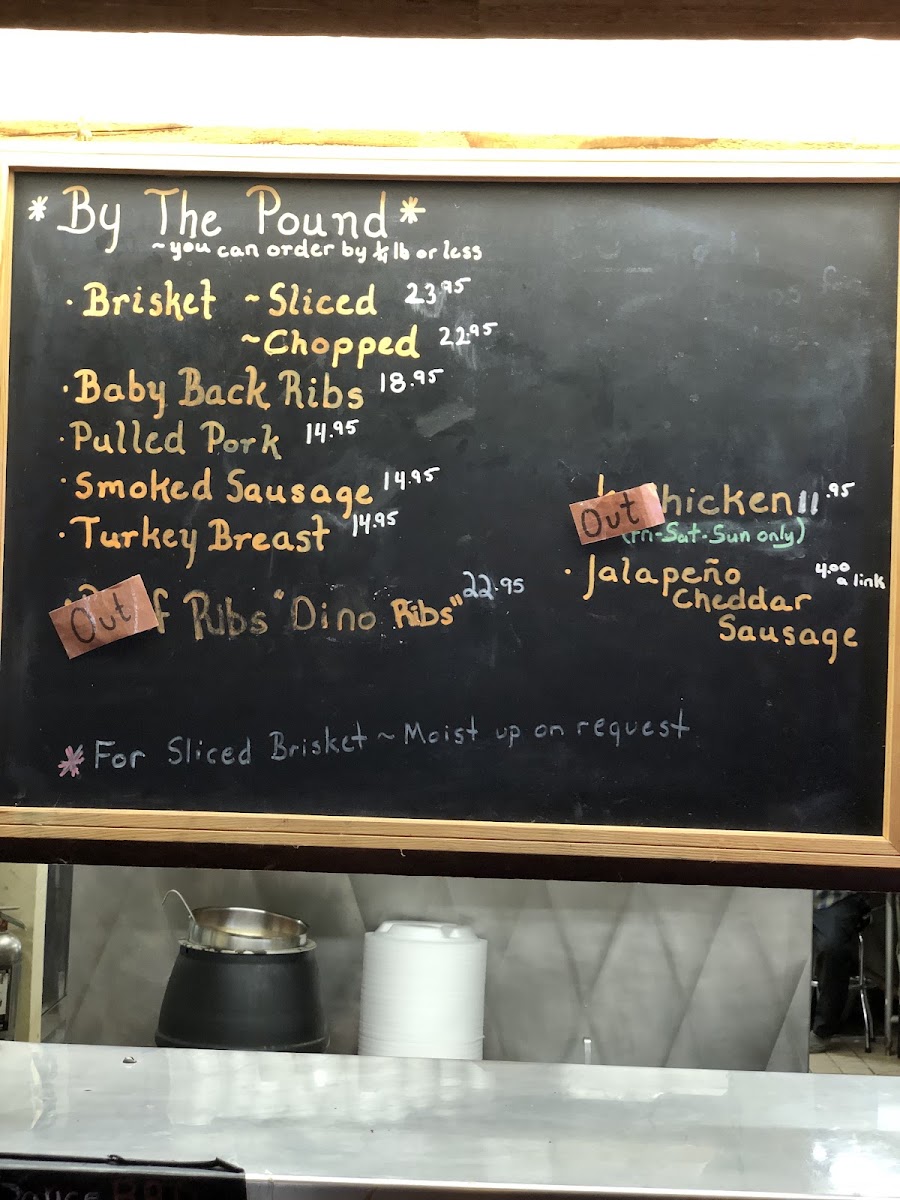 *By The Pound*
~you can order by ¼ lb or less
· Brisket ~Sliced 23.95
~Chopped 22.95
· Baby Back Ribs 18.95
· Pulled Pork 14.95
· Smoked Sausage 14.95
· Turkey Breast 14.95
Out f Ribs "Dino Ribs" 22.95
Out hicken 11.95
(Fri-Sat-Sun only)
· Jalapeño 4.00
a link
Cheddar
Sausage
* For Sliced Brisket ~ Moist up on request